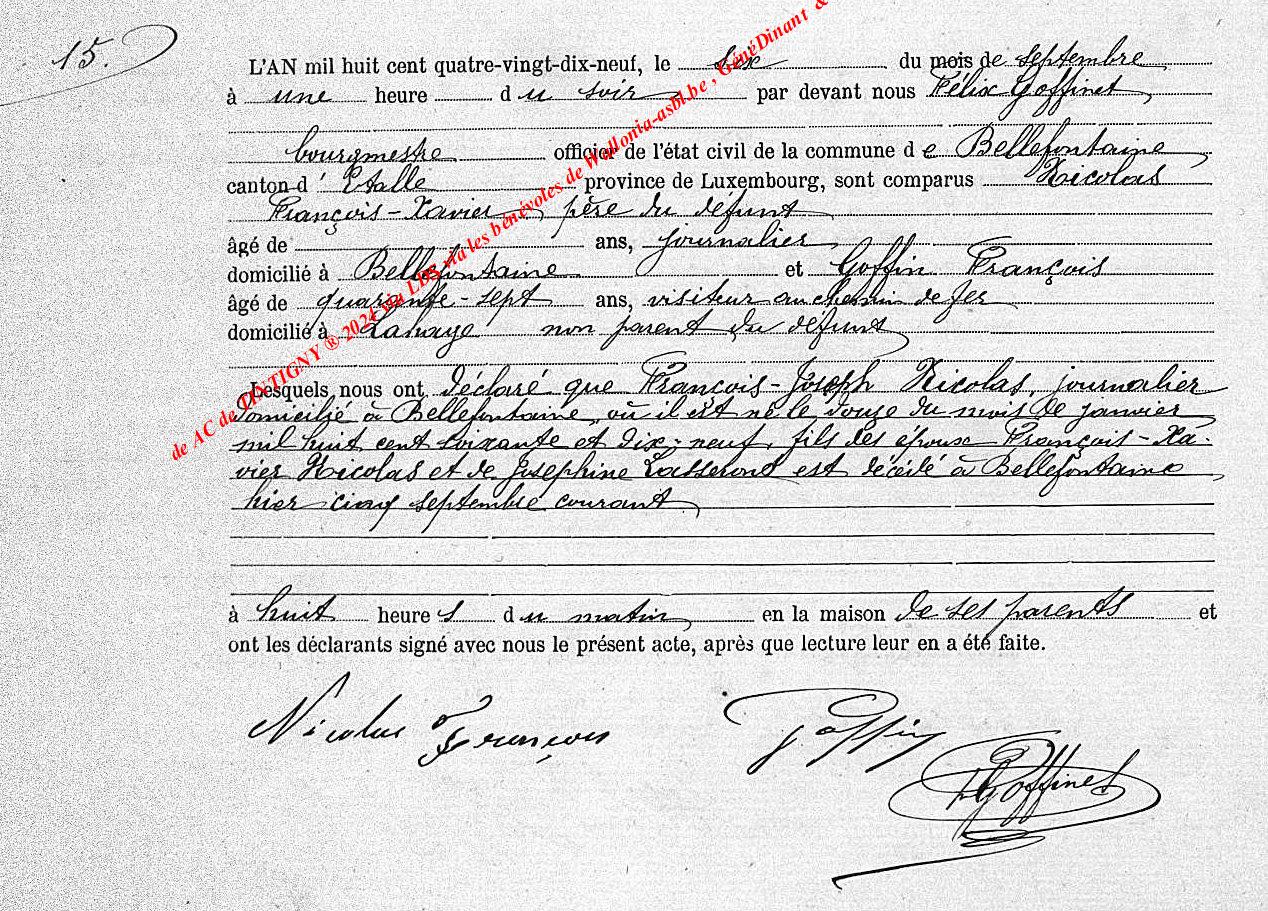 15.
L'AN mil huit cent quatre-vingt-dix-neuf, le six du mois de septembre
à une heure du soir par devant nous Félix Goffinet,
bourgmestre officier de l'état civil de la commune de Bellefontaine,
canton d'Etalle province de Luxembourg, sont comparus Nicolas
François-Xavier père du défunt
âgé de ans, journalier,
domicilié à Bellefontaine et Goffin François
âgé de quarante-sept ans, visiteur au chemin de fer
domicilié à Lahage non parent du défunt,
Lesquels nous ont déclaré que François-Joseph Nicolas, journalier
domicilié à Bellefontaine, où il est né le douze du mois de janvier
mil huit cent soixante et dix-neuf, fils des époux François-Xa-
vier Nicolas et de Joséphine est décédé à Bellefontaine,
hier cinq septembre courant,
à huit heures du matin, en la maison de ses parents et
ont les déclarants signé avec nous le présent acte, après que lecture leur en a été faite.
Nicolas François
Goffin
FGoffinet
de AC de TINTIGNY ® 2024 via LDS via les bénévoles de Wallonia-asbl.be, GénéDinant &